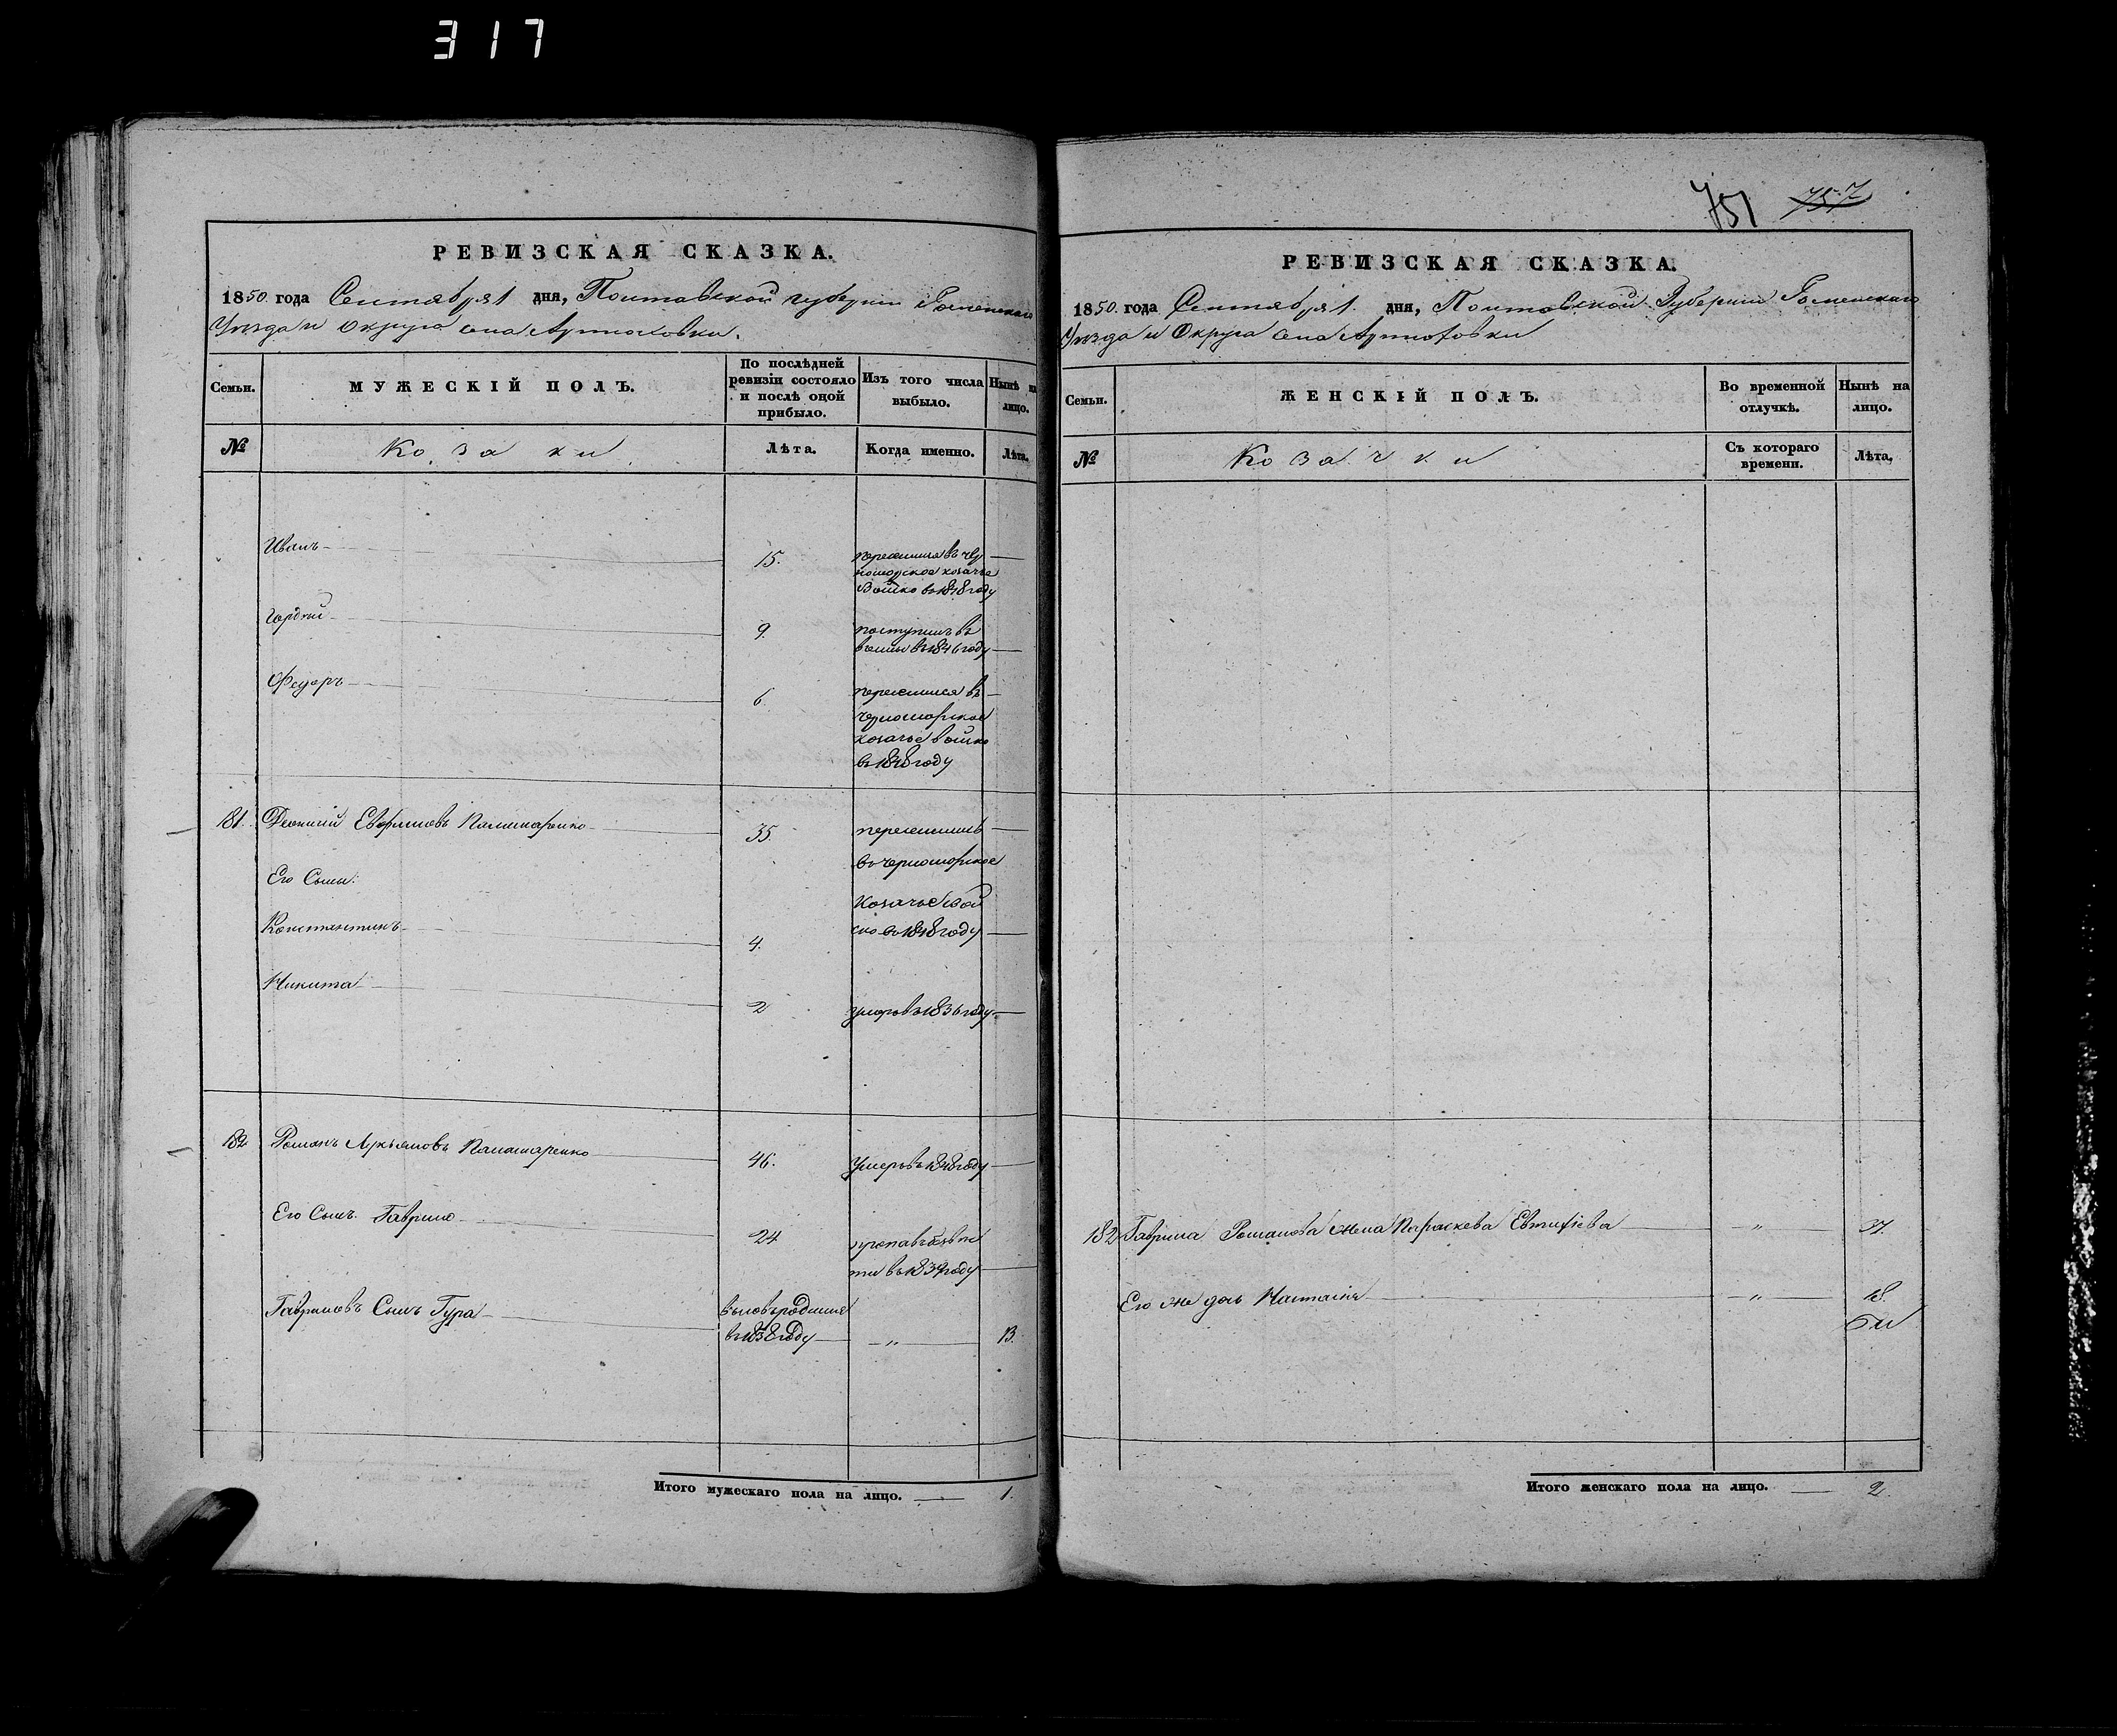 317
РЕВИЗСКАЯ СКАЗКА.
1850. года Сентября 1 дня, Полтавской губернии Роменскаго
Уѣзда и Округа села Артюховки.
Семьи.
МУЖЕСКІЙ ПОЛЪ.
По послѣдней ревизіи состояло и послѣ оной прибыло.
Изъ того числа выбыло.
Нынѣ на лицо.
№
Козаки
Лѣта.
Когда именно.
Лѣта.
Иванъ
15.
переселился въ чер
номорское козачье
Войско въ 1848 году
Гордѣй
9.
поступилъ въ
въ 1846 году
Федоръ
6
переселился въ
черноморское
козачье войско
въ 1848 году
181. Евфимовъ Паламаренко
35
переселились
въ черноморское
Его Сыны:
козачье вой
Константинъ
4.
ско въ 1848 году
Никита
2
умеръ въ 1836 году
182 Романъ Лукьяновъ Паламаренко
46.
Умеръ въ 1848 году
Его Сынъ Гаврило
24
пропавъ безъ вѣ
сти въ 1839 году
Гавриловъ Сынъ Гура
вновь родился
въ 1838 году
„
13.
Итого мужескаго пола на лицо.
1.
751 757
РЕВИЗСКАЯ СКАЗКА.
1850. года Сентября 1. дня, Полтавской Губерніи Роменскаго
Уѣзда и Округа села Артюховки
Семьи.
ЖЕНСКІЙ ПОЛЪ.
Во временной отлучкѣ.
Нынѣ на лицо.
№
Козачки
Съ котораго времени.
Лѣта.
182 Гаврила Романова жена Параскева Евтифіева
„
37.
Его же дочь
„
18.
Итого женскаго пола на лицо.
2.